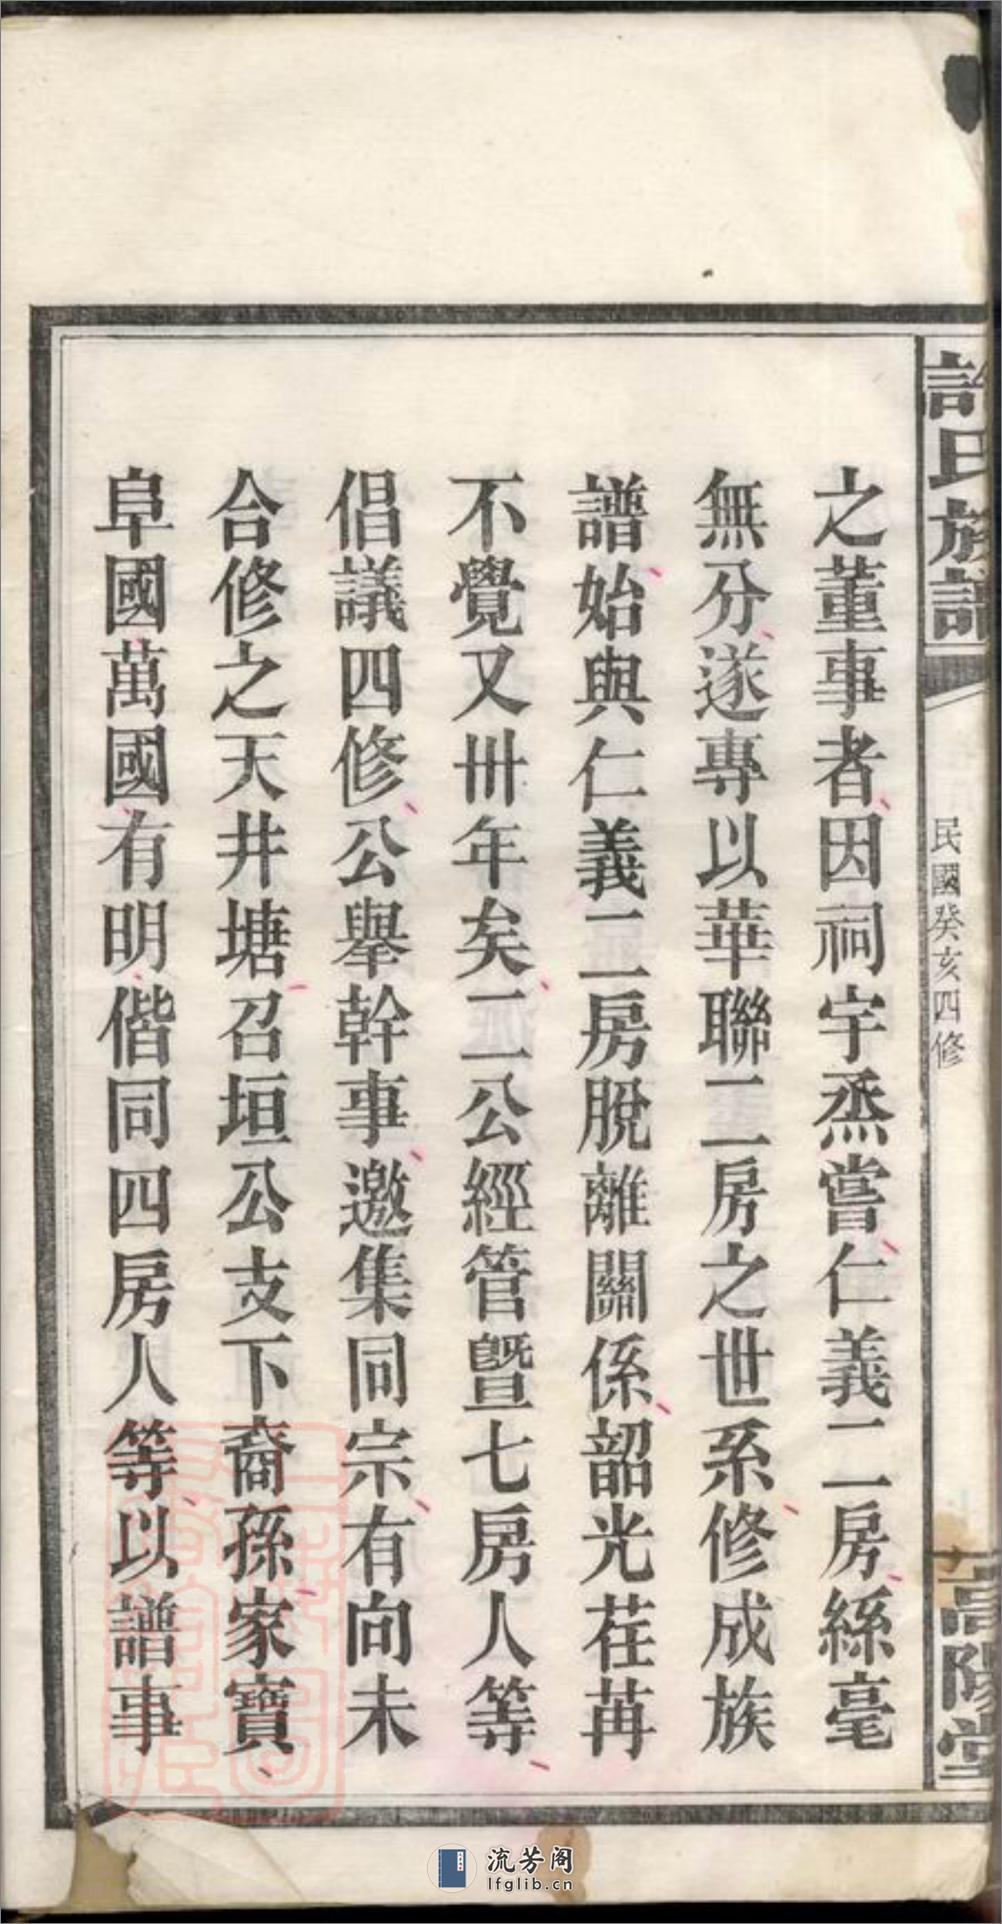 許氏族譜
民國癸亥四修
高陽堂
之董事者因祠宇烝嘗仁義二房絲毫
無分遂專以華聯二房之世系修成族
譜始與仁義二房脫離關係韶光荏苒
不覺又卅年矣二公經管曁七房人等
倡議四修公舉幹事邀集同宗有向未
合修之天井塘召垣公支下裔孫家寶
阜國萬國有明偕同四房人等以譜事
流芳阁
lfglib.cn